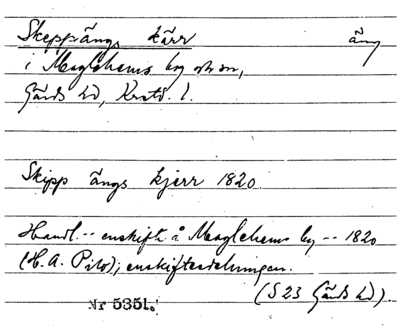 Skeppängs kärr äng
i Maglehems by och sn,
Gärds hd, Krstd. l.
Skipp ängs kjerr 1820
Handl. -- enskifte å Maglehems by -- 1820
(H. A. Pito); enskiftesdelningen.
(S 23 Gärds hd).
Nr 5351.